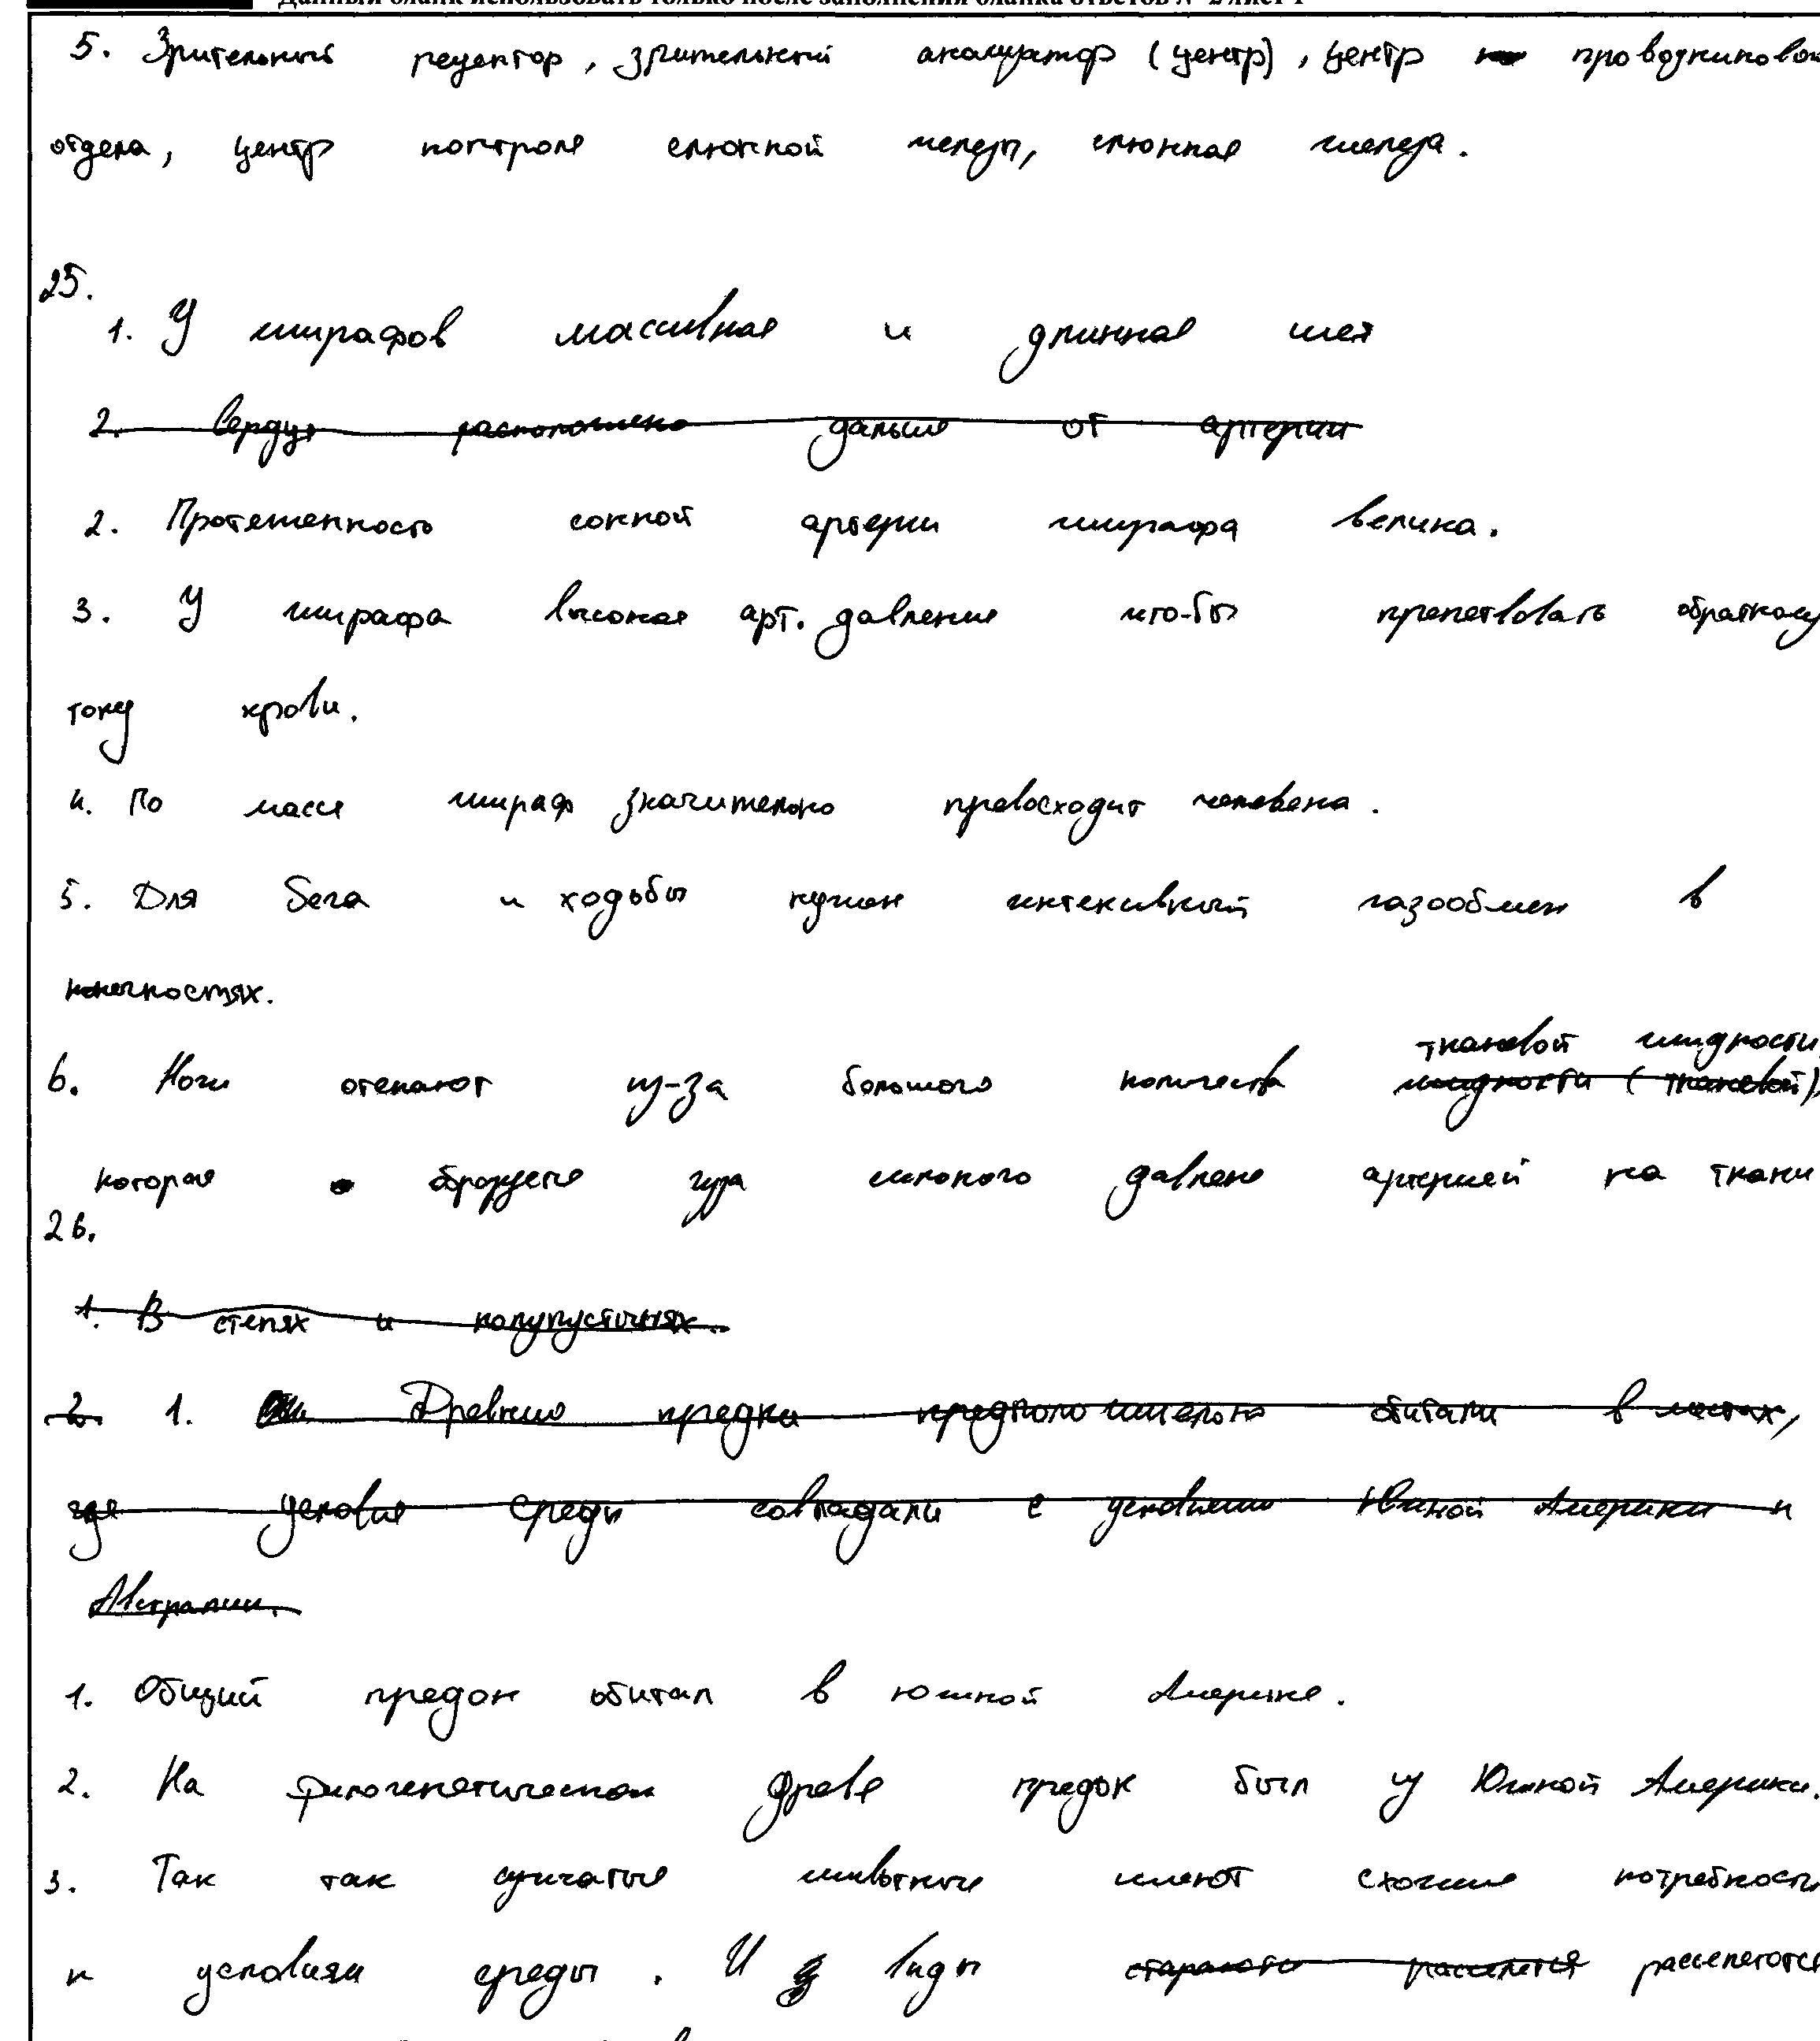 Данный бланк использовать только после заполнения бланка ответов № 2 лист 1
5. Зрительный рецептор, зрительный анализатор (центр), центр проводниковой
отдела, центр контроля слюнной железы, слюнная железа.
25.
1. У жирафов массивная и длинная шея
2. Сердце расположено дальше от артерии
2. Протяженность сонной артерии жирафа велика.
3. У жирафа высокое арт. давление что-бы препетвовать обратному
току крови.
4. По массе жираф значительно превосходит человека.
5. Для бега и ходьбы нужен интексивный газообмен в
конечностях.
тканевой жидкости,
6. Ноги отекают из-за большого количества жидкости (тканевой),
которая образуется давлене артерией на ткани
26.
1. В степях и полупустынях.
2. 1. Древние предки предположительно обитали в местах,
где условия среды совпадали с условиями Южной Америки и
Австралии.
1. Общий предок обитал в южной Америке.
2. На филогенетическом древе предок был из Южной Америки.
3. Так как сумчатые животные имеют схожие потребности
к условиям среды. И виды стараются расселится расселяются